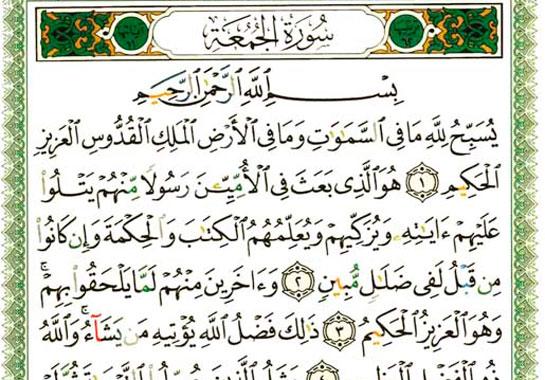 سُورَةُ الجُمُعَةِ
بِسْمِ ٱللَّهِ ٱلرَّحْمَٰنِ ٱلرَّحِيمِ
يُسَبِّحُ لِلَّهِ مَا فِى ٱلسَّمَٰوَٰتِ وَمَا فِى ٱلْأَرْضِ ٱلْمَلِكِ ٱلْقُدُّوسِ ٱلْعَزِيزِ
ٱلْحَكِيمِ ١ هُوَ ٱلَّذِى بَعَثَ فِى ٱلْأُمِّيِّۦنَ رَسُولًا مِّنْهُمْ يَتْلُوا۟
عَلَيْهِمْ ءَايَٰتِهِۦ وَيُزَكِّيهِمْ وَيُعَلِّمُهُمُ ٱلْكِتَٰبَ وَٱلْحِكْمَةَ وَإِن كَانُوا۟
مِن قَبْلُ لَفِى ضَلَٰلٍ مُّبِينٍ ٢ وَءَاخَرِينَ مِنْهُمْ لَمَّا يَلْحَقُوا۟ بِهِمْ ۚ
وَهُوَ ٱلْعَزِيزُ ٱلْحَكِيمُ ٣ ذَٰلِكَ فَضْلُ ٱللَّهِ يُؤْتِيهِ مَن يَشَآءُ ۚ وَٱللَّهُ